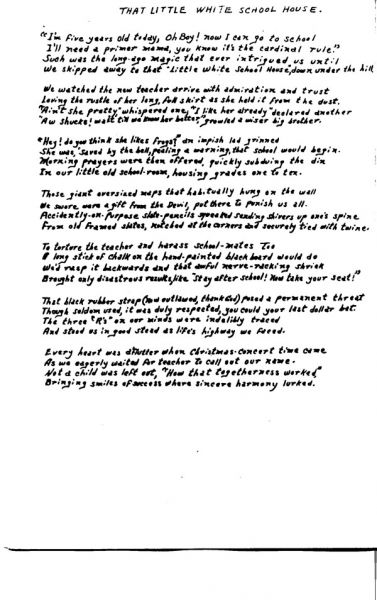 THAT LITTLE WHITE SCHOOL HOUSE.
"I'm five years old today, Oh Boy! now I can go to school
I'll need a primer mama, you know it's the cardinal rule."
Such was the long-ago magic that ever intrigued us until
We skipped away to that "Little White School House," down under the hill
We watched the new teacher arrive with admiration and trust
Loving the rustle of her long, full skirt as she held it from the dust.
"Ain't she pretty" whispered one, "I like her already" declared another
"Aw shucks! wait till we know her better", growled a wiser big brother.
"Hey! do you think she likes frogs?" an impish lad grinned
She was, saved by the bell, pealing a morning, that school would begin.
Morning prayers were then offered, quickly subduing the din
In our little old school-room, housing grades one to ten.
Those giant oversized maps that habitually hung on the wall
We swore were a gift from the Devil, put there to punish us all.
Accidently-on-purpose slate-pencils sending shivers up one's spine
From old framed slates, notched at the corners and securely tied with twine.
To torture the teacher and harass school-mates too
A long stick of chalk on the hand-painted blackboard would do
We'd rasp it backwards and that awful nerve-racking shriek
Brought only disastrous results, like "Stay after school! Now take your seat!"
That black rubber strap (now outlawed, thank God) posed a permanent threat
Though seldom used, it was duly respected, you could your last dollar bet.
The three "R's" on our minds were indelibly traced
And stood us in good stead as life's highway we faced.
Every heart was aflutter when Christmas-concert time came
As we eagerly waited for teacher to call out our name.
Not a child was left out, "How that togetherness worked"
Bringing smiles of success where sincere harmony lurked.